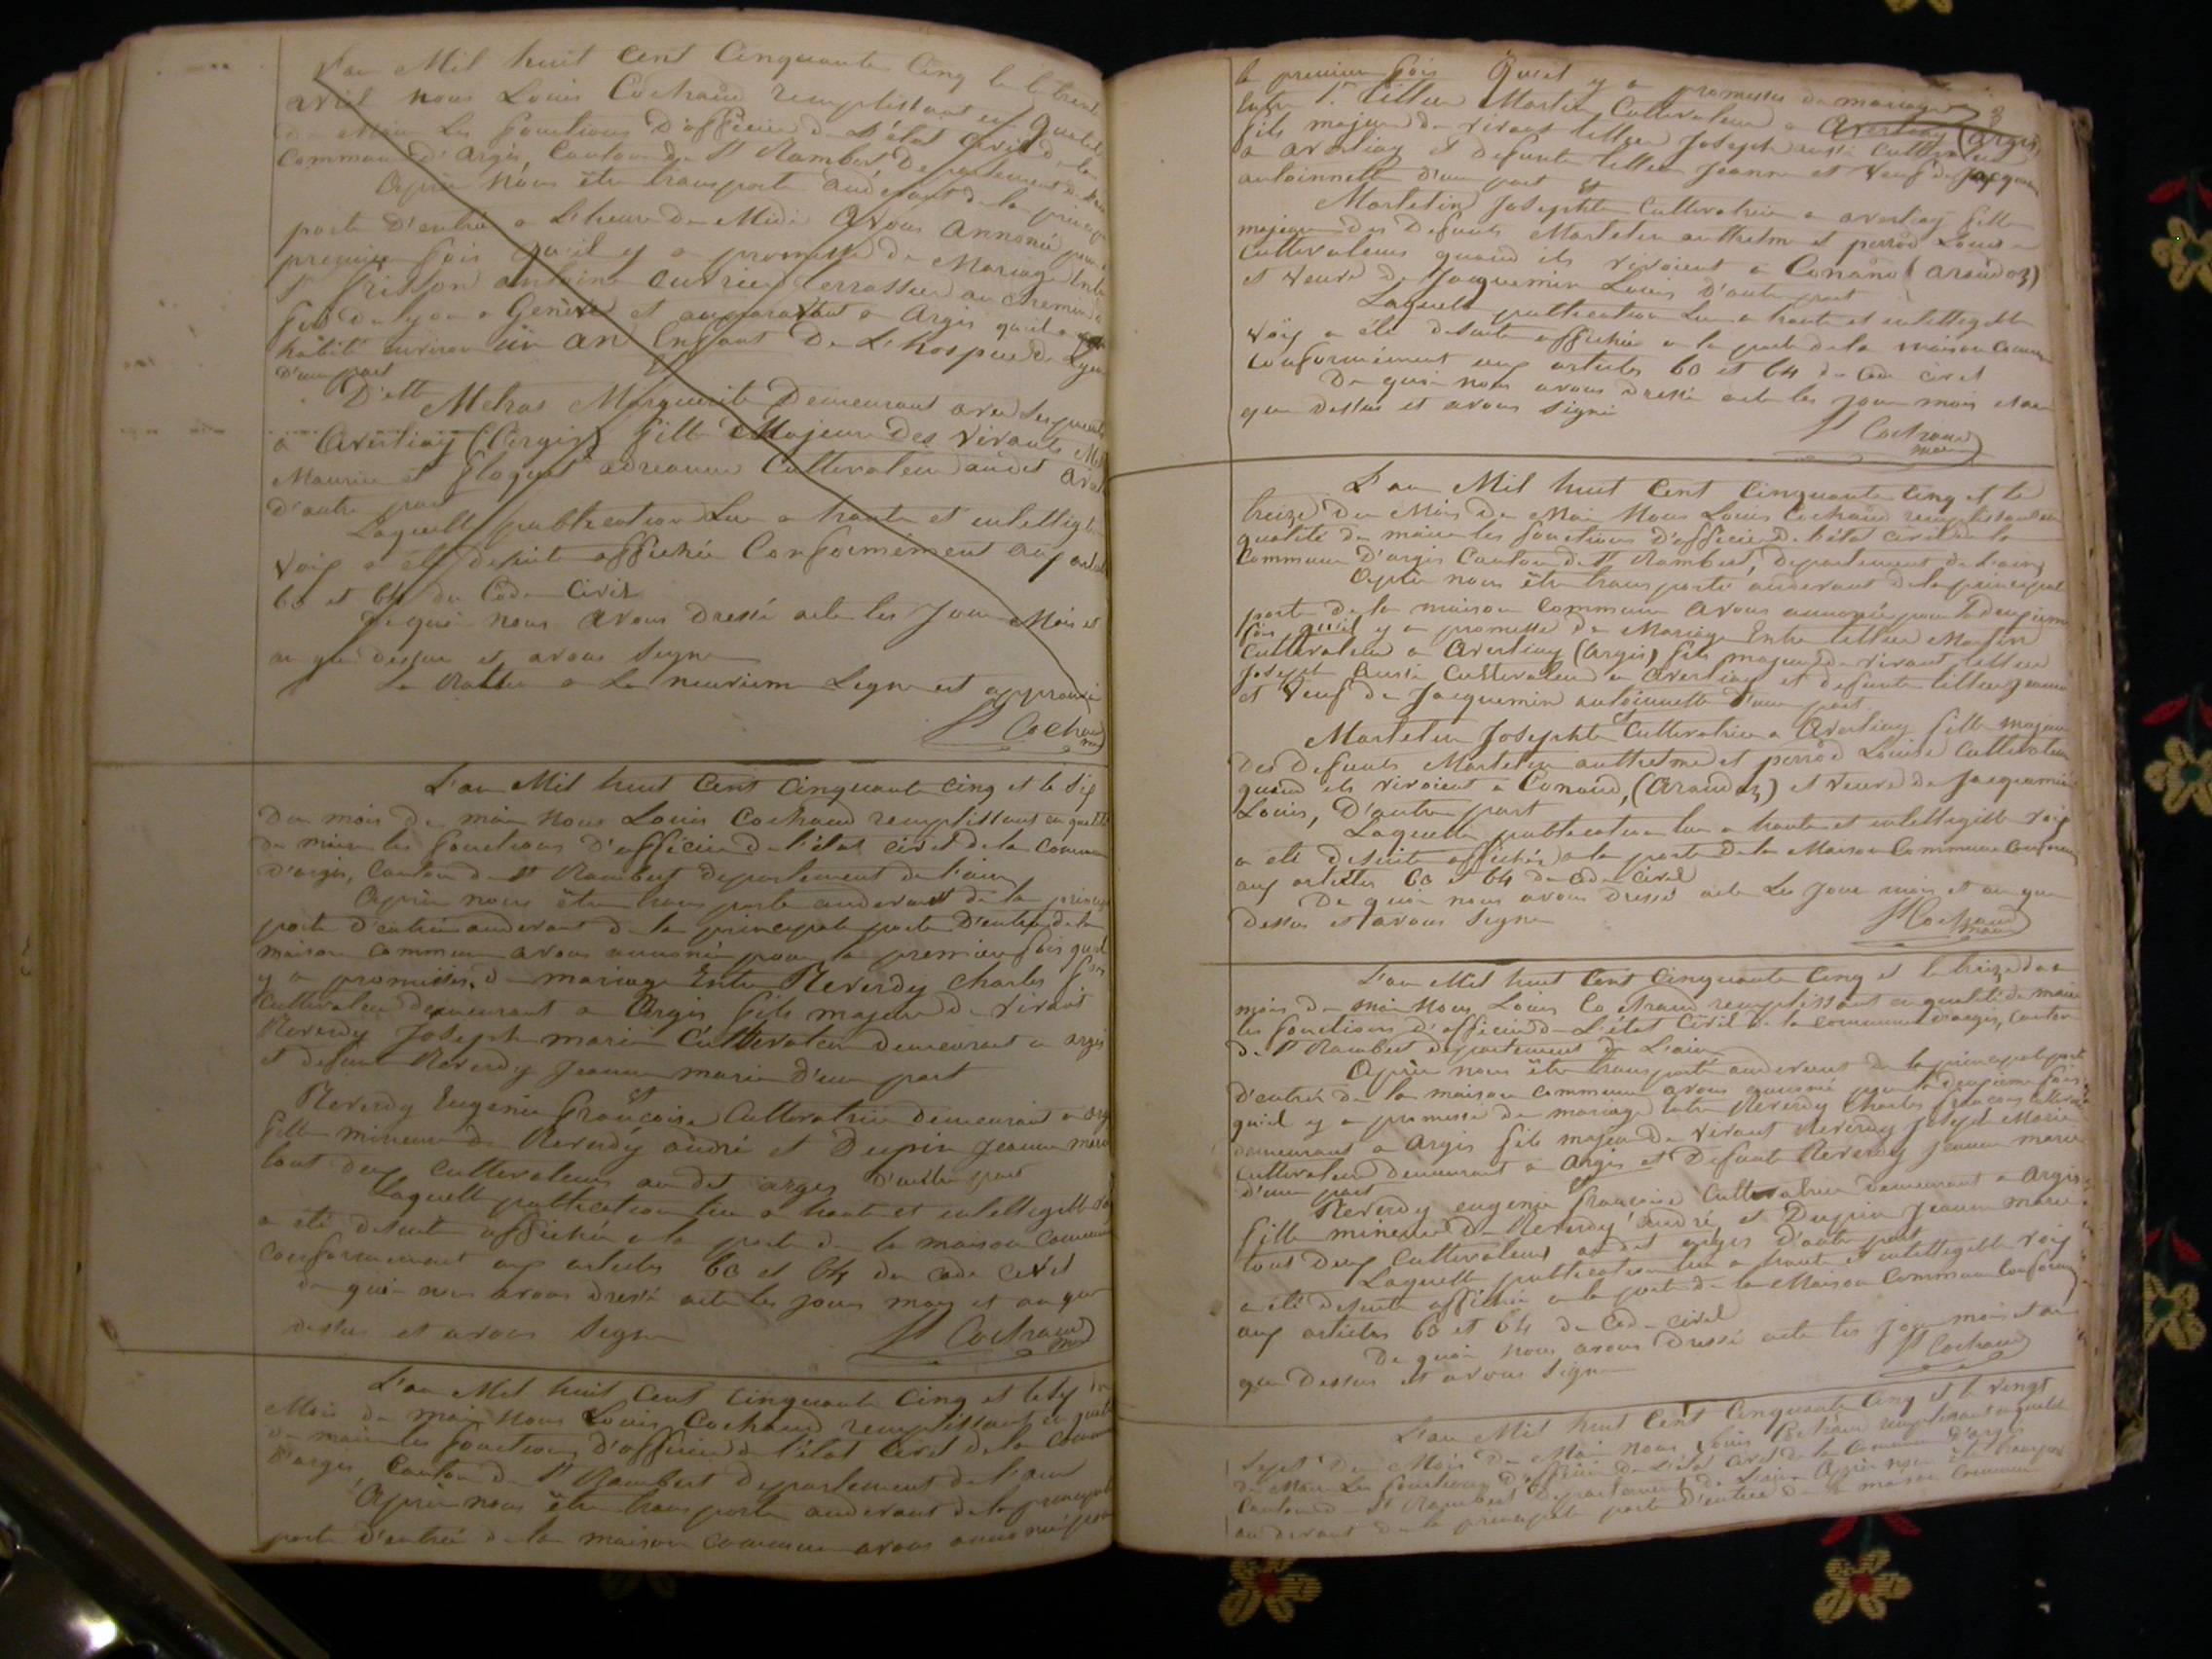 L'an Mil huit Cent Cinquante Cinq le
avril nous Louis Cochaud remplissant en qualité
de Maire les fonctions D'officier de L'état Civil de la
Commune D'argis, Canton de St Rambert Departement de
Après nous être transporté audevant de la principale
porte D'entrée a L'heure de Midi avons annoncé pour
premiere fois qu'il y a promesse de Mariage Entre
antoine ouvrier terrassier au chemin de
de Lyon a Genève et auparavant a Argis qu'il a
habité environ un an Enfant De L'hospice de Lyon
D'une part
Et
D'elle Melras Marguerite Demeurant avec Ses parents
a Averliay (Argis) fille Majeure Des vivants
Maurice et adreanne Cultivateur audit
D'autre part
Laquelle publication Lue a haute et intelligible
voix a été desuite affichée Conformément aux articles
63 et 64 du Code Civil
De quoi nous avons Dressé acte les Jour Mois et
an que dessus et avons Signé
La Rature a La neuvieme Ligne est approuvé
L Cochaud
L'an Mil huit Cent Cinquante Cinq et le Six
Du mois de mai nous Louis Cochaud remplissant en qualité
de maire les fonctions D'officier de l'état civil de la Commune
D'argis, Canton de St Rambert departement de l'ain
Après nous être transporté audevant de la principale
porte d'entrée audevant de la principale porte D'entrée de la
maison Commune avons annoncé pour la premiere fois qu'il
y a promesse de mariage Entre Reverdy Charles
Cultivateur Demeurant a Argis fils majeur de vivant
Reverdy Joseph marie Cultivateur Demeurant a argis
et defunte Reverdy Jeanne marie D'une part
Et
Reverdy Eugenie françoise Cultivatrice Demeurant a
fille mineure de Reverdy andré et Dupin Jeanne marie
tout deux Cultivateurs audit argis D'autre part
Laquelle publication lue a haute et intelligible
a été desuite affichée a la porte de la maison Commune
Conformement aux articles 63 et 64 du Code Civil
de quoi nous avons dressé acte les jours mois et an que
dessus et avons Signé
L Cochaud
L'an Mil huit Cent Cinquante Cinq et le Six du
Mois de mai nous Louis Cochaud remplissant en qualité
de maire les fonctions d'officier de l'état Civil de la Commune
D'argis, Canton de St Rambert Departement de l'ain
Après nous être transporté audevant de la principale
porte d'entrée de la maison Commune avons annoncé pour
la premiere fois Qu'il y a promesses de mariage
Entre Sr. tillier Martin Cultivateur a Averliay (Argis)
fils majeur de vivant tillier Joseph aussi Cultivateur
a Averliay et defunte tillier Jeanne et Veuf de Jacquemin
antoinnette d'une part
Et
Martelin Josephte Cultivatrice a averliay fille
majeure des Defunts Martelin anthelme et perrod Louise
Cultivateurs quand ils vivoient a Conand (Arandaz)
et veuve de Jacquemin Louis D'autre part
Laquelle publication Lue a haute et intelligible
Voix a été desuite affichée a la porte de la maison Commune
Conformément aux articles 63 et 64 du Code Civil
De quoi nous avons dressé acte les jour mois et an
que dessus et avons Signé
L Cochaud
maire
L'an Mil huit Cent Cinquante Cinq et le
treize Du Mois de Mai Nous Louis Cochaud remplissant en
qualité de maire les fonctions d'officier de l'état civil de la
Commune D'argis Canton de St Rambert, Departement de L'ain
Après nous être transporté audevant de la principale
porte de la maison Commune avons annoncé pour la deuxieme
fois qu'il y a promesse de Mariage Entre tillier Martin
Cultivateur a Averliay (Argis) fils majeur de vivant tillier
Joseph aussi Cultivateur a Averliay et defunte tillier Jeanne
et Veuf de Jacquemin antoinnette D'une part
Et
Martelin Josephte Cultivatrice a Averliay fille majeure
Des Defunts Martelin anthelme et perrod Louise Cultivateurs
quand ils vivoient a Conand, (Arandaz) et veuve de Jacquemin
Louis, D'autre part
Laquelle publication lue a haute et intelligible voix
a été desuite affichée a la porte de la Maison Commune
aux articles 63 et 64 du Code Civil
De quoi nous avons dressé acte Les jour mois et an que
dessus et avons Signé
L Cochaud
maire
L'an Mil huit Cent Cinquante Cinq et le treize du
mois de mai nous Louis Cochaud remplissant en qualité de maire
les fonctions d'officier de L'état Civil de la Commune d'argis, Canton
de St Rambert departement de L'ain
Après nous être transporté audevant de la principale porte
D'entrée de la maison Commune avons annoncé pour la deuxieme fois
qu'il y a promesse de mariage entre Reverdy Charles françois
demeurant a Argis fils majeur de vivant Reverdy Joseph Marie
Cultivateur Demeurant a Argis et Defunte Reverdy Jeanne marie
D'une part
Et
Reverdy eugenie françoise Cultivatrice Demeurant a Argis
fille mineure de Reverdy andré et Dupin Jeanne marie
tous deux Cultivateurs audit argis D'autre part
Laquelle publication lue a haute et intelligible voix
a été desuite affichée a la porte de la Maison Commune
aux articles 63 et 64 du Code civil
De quoi nous avons Dressé acte les jour mois et an
que Dessus et avons Signé
L Cochaud
L'an Mil huit Cent Cinquante Cinq et le vingt
Sept Du Mois De Mai nous Louis Cochaud remplissant en qualité
De Maire Les fonctions D'officier De L'état Civil de la Commune D'argis
Canton de St Rambert Departement de L'ain Après nous être transporté
audevant de la principale porte D'entrée de la maison Commune